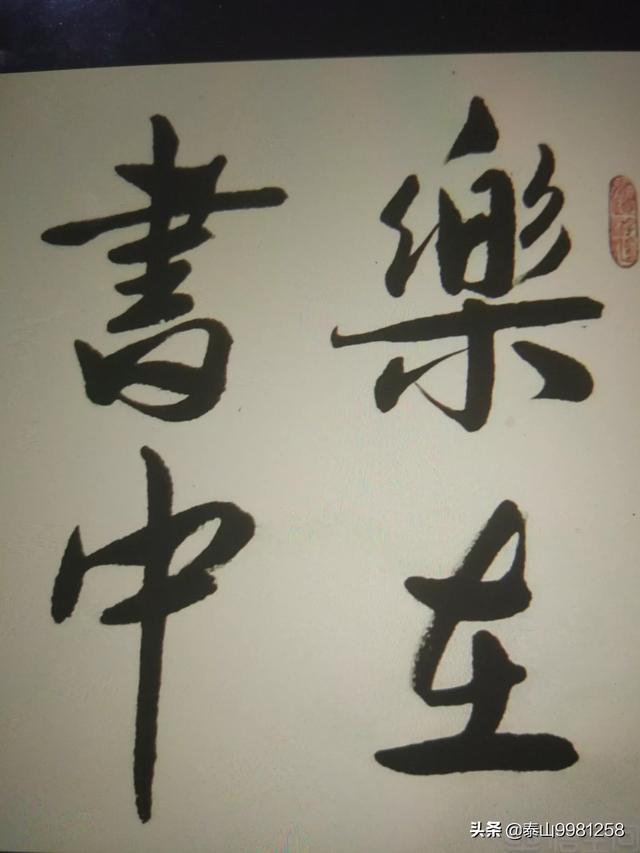 樂在
書中
头条 @泰山9981258